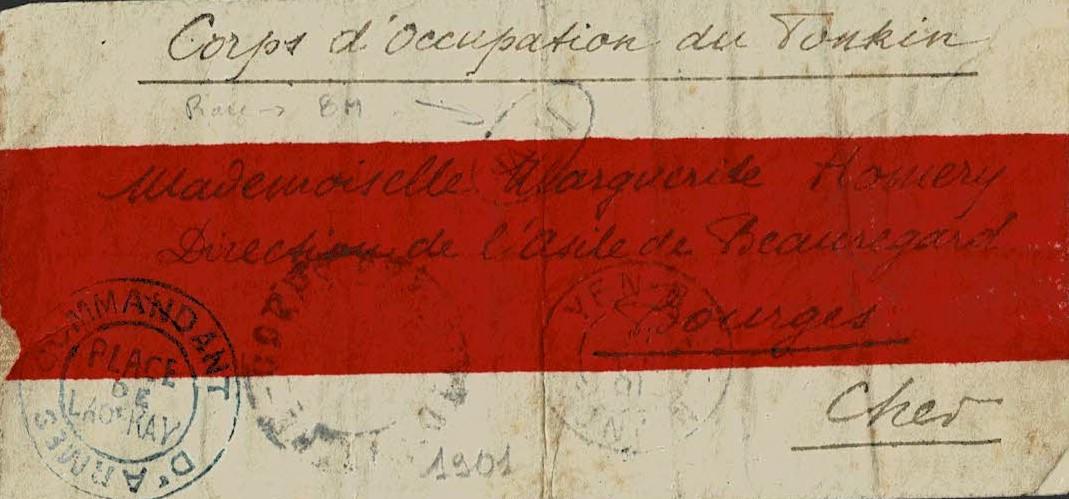 Corps d'Occupation du Tonkin
Mademoiselle Marguerite Homery
Direction de l'Asile de Beauregard
Bourges
Cher
COMMANDANT D'ARMES
PLACE
DE
LAO-KAY
1901